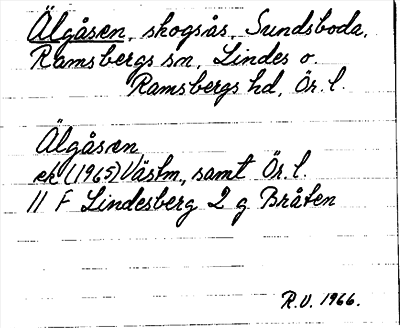 Älgåsen, skogsås, Sundsboda,
Ramsbergs sn, Lindes o.
Ramsbergs hd, Ör. l.
Älgåsen
ek (1965) Västm., samt Ör. l.
11 F Lindesberg 2 g Bråten
R.V. 1966.